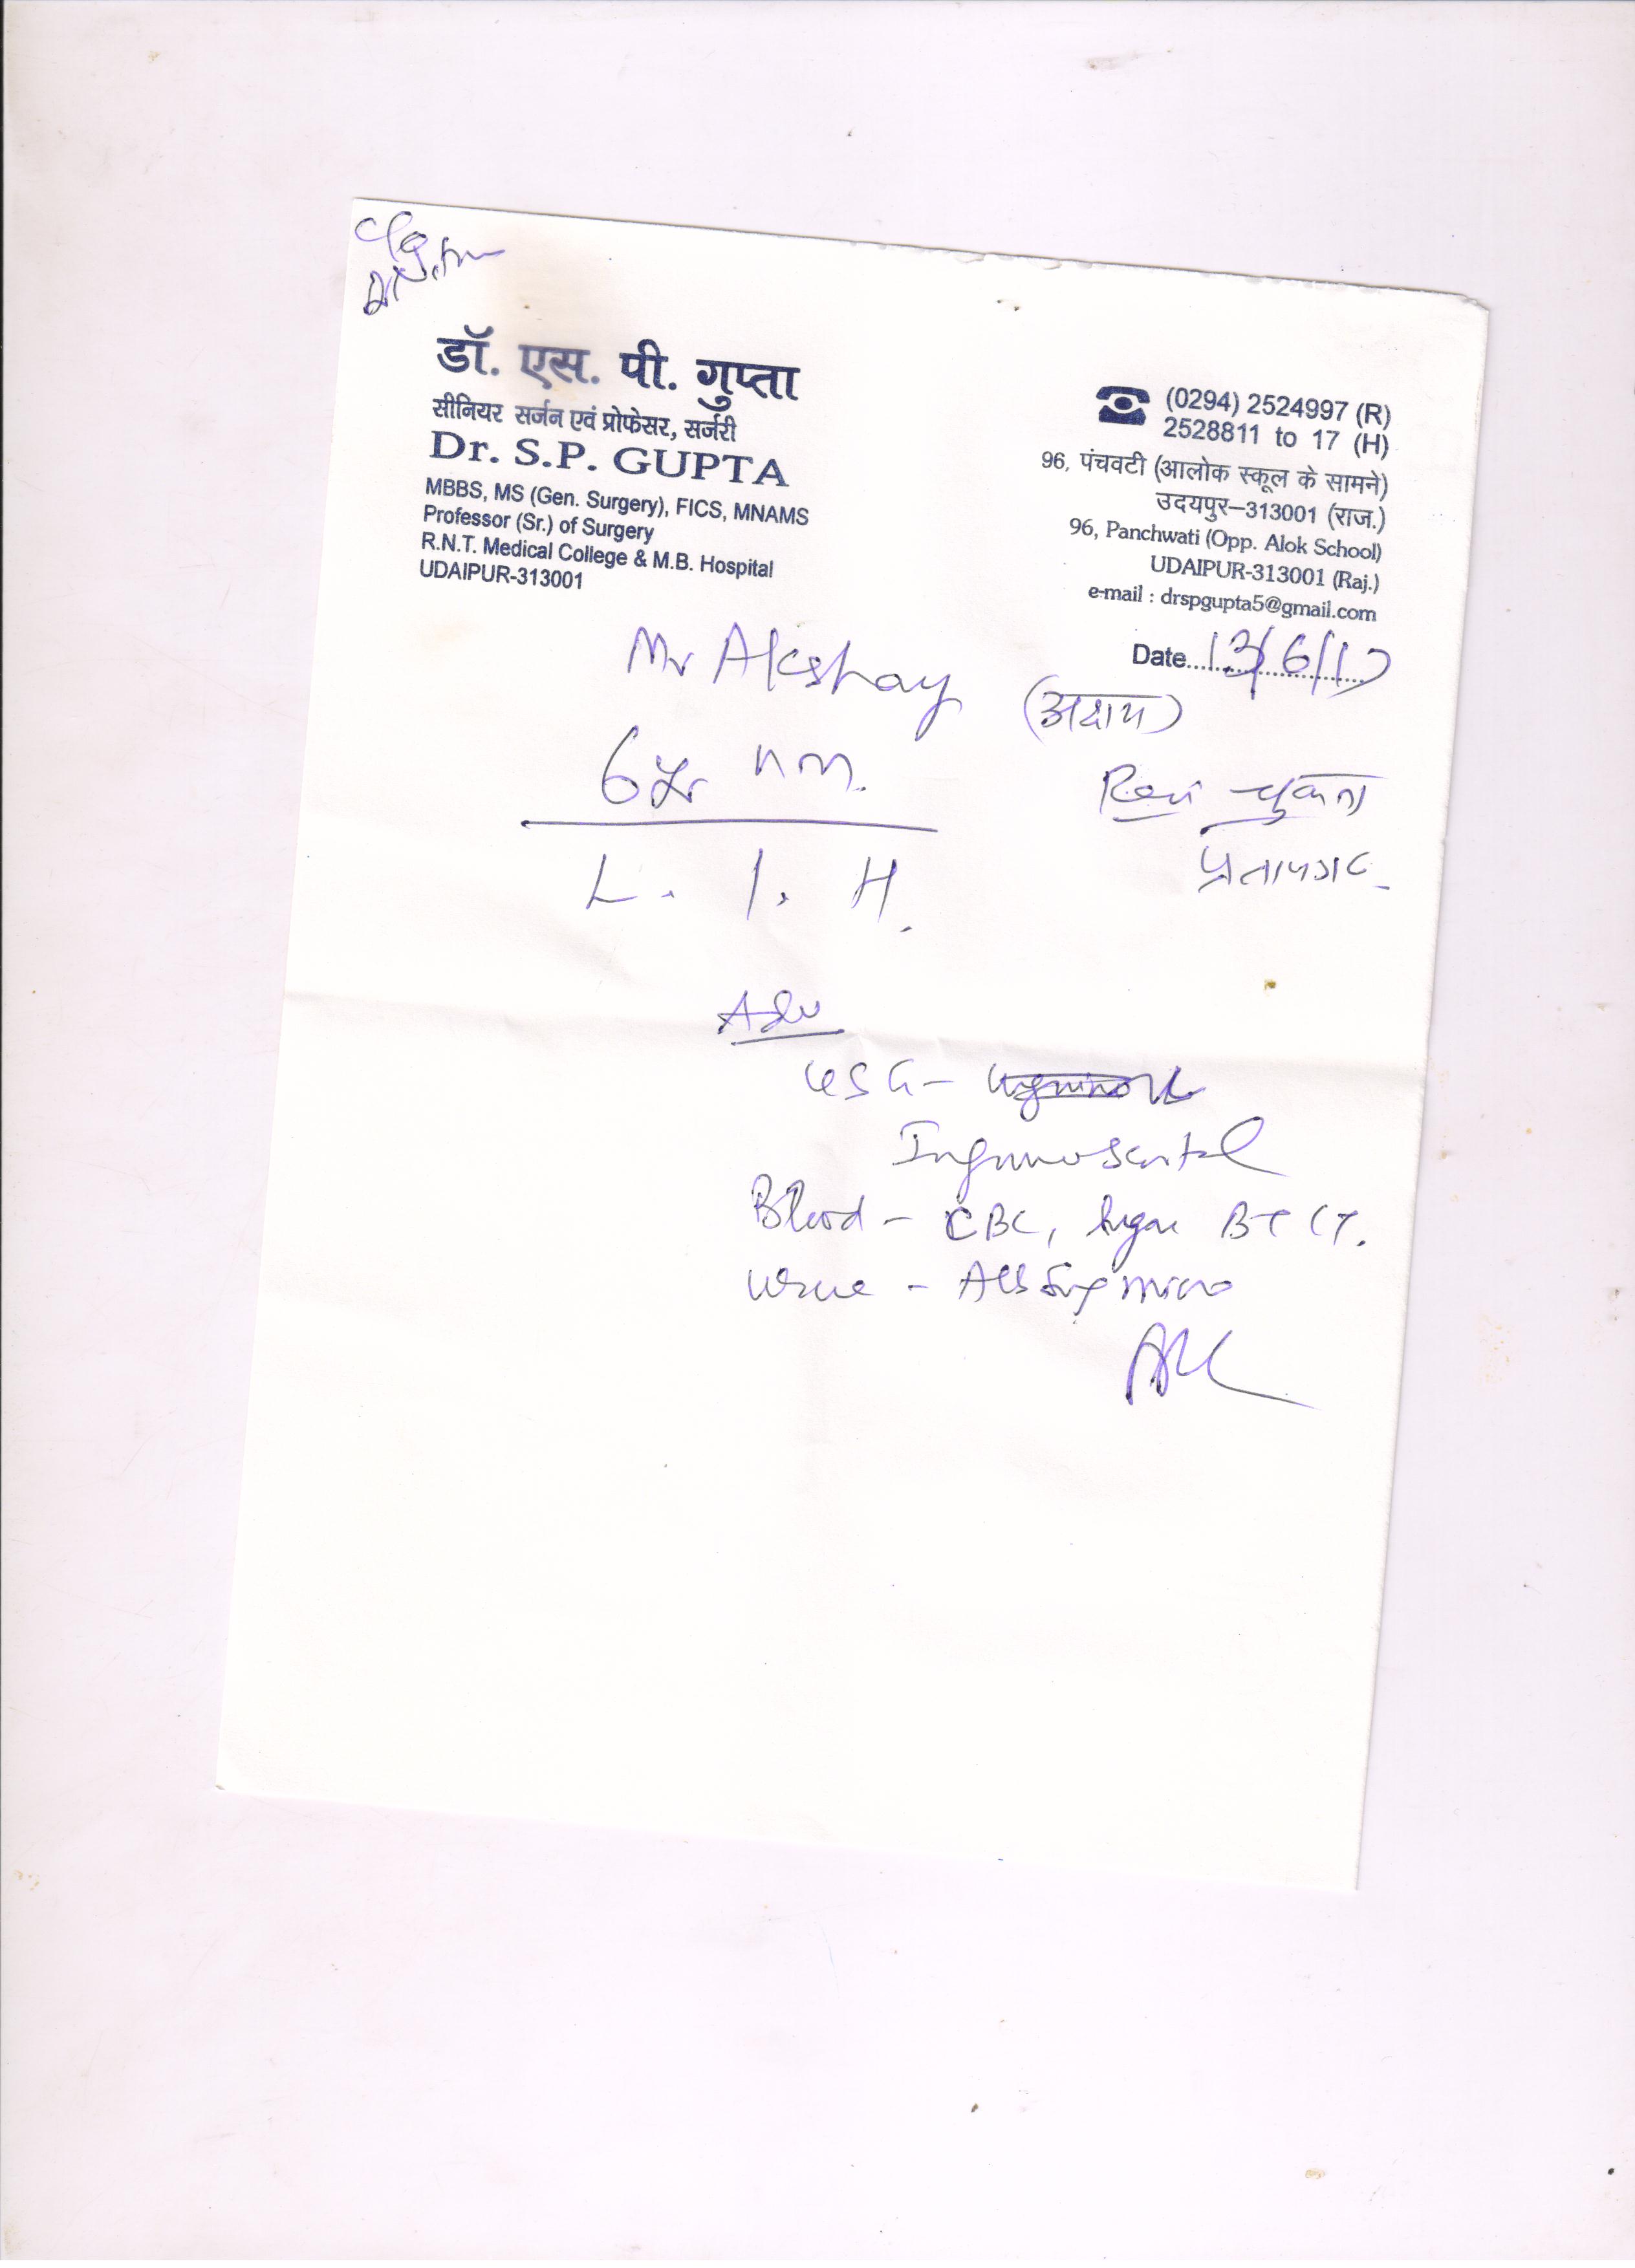 डॉ. एस. पी. गुप्ता
सीनियर सर्जन एवं प्रोफेसर, सर्जरी
Dr. S.P. GUPTA
MBBS, MS (Gen. Surgery), FICS, MNAMS
Professor (Sr.) of Surgery
R.N.T. Medical College & M.B. Hospital
UDAIPUR-313001
(0294) 2524997 (R)
2528811 to 17 (H)
96, पंचवटी (आलोक स्कूल के सामने)
उदयपुर–313001 (राज.)
96, Panchwati (Opp. Alok School)
UDAIPUR-313001 (Raj.)
e-mail : drspgupta5@gmail.com
Date 13/6/17
Mr Akshay (अक्षय)
6 yr
प्रतापगढ
L. I. H.
Adv
USG -
Inguinoscrotal
Blood - CBC, Sugar BT CT.
Urine - Alb Sug micro